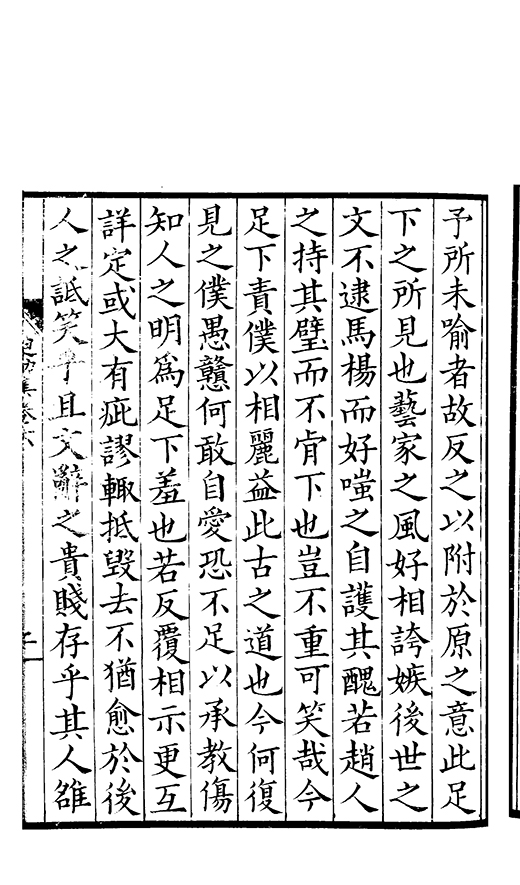 予所未喻者故反之以附於原之意此足
下之所見也藝家之風好相誇嫉後世之
文不逮馬楊而好嗤之自護其醜若趙人
之持其璧而不肯下也豈不重可笑哉今
足下責僕以相麗益此古之道也今何復
見之僕愚戇何敢自愛恐不足以承教傷
知人之明爲足下羞也若反覆相示更互
詳定或大有疵謬輙抵毀去不猶愈於後
人之詆笑乎且文辭之貴賤存乎其人雖